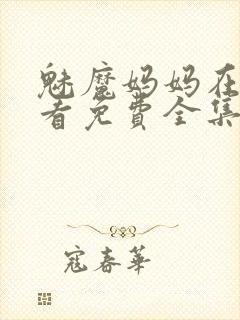 魅魔妈妈在
看免费全集
寇春华